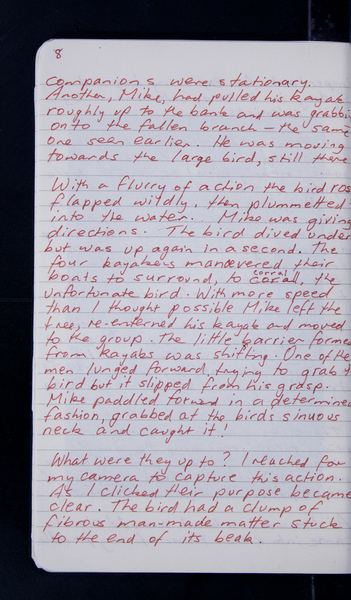 8
companions were stationary.
Another, Mike, had pulled his kayak
roughly up to the bank and was grabbi
onto the fallen branch – the same
one seen earlier. He was moving
towards the large bird, still there
With a flurry of action the bird ros
flapped wildly, then plummetted
into the water. Mike was giving
directions. The bird dived under
but was up again in a second. The
four kayakers manoevered their
boats to surround, to corral, the
unfortunate bird. With more speed
than I thought possible Mike left the
tree, re-enterred his kayak and moved
to the group. The little barrier formed
from kayaks was shifting. One of the
men lunged forward, trying to grab t
bird but it slipped from his grasp.
Mike paddled forward in a determined
fashion, grabbed at the birds sinuous
neck and caught it!
What were they up to? I reached for
my camera to capture this action.
As I clicked their purpose became
clear. The bird had a clump of
fibrous man-made matter stuck
to the end of its beak.